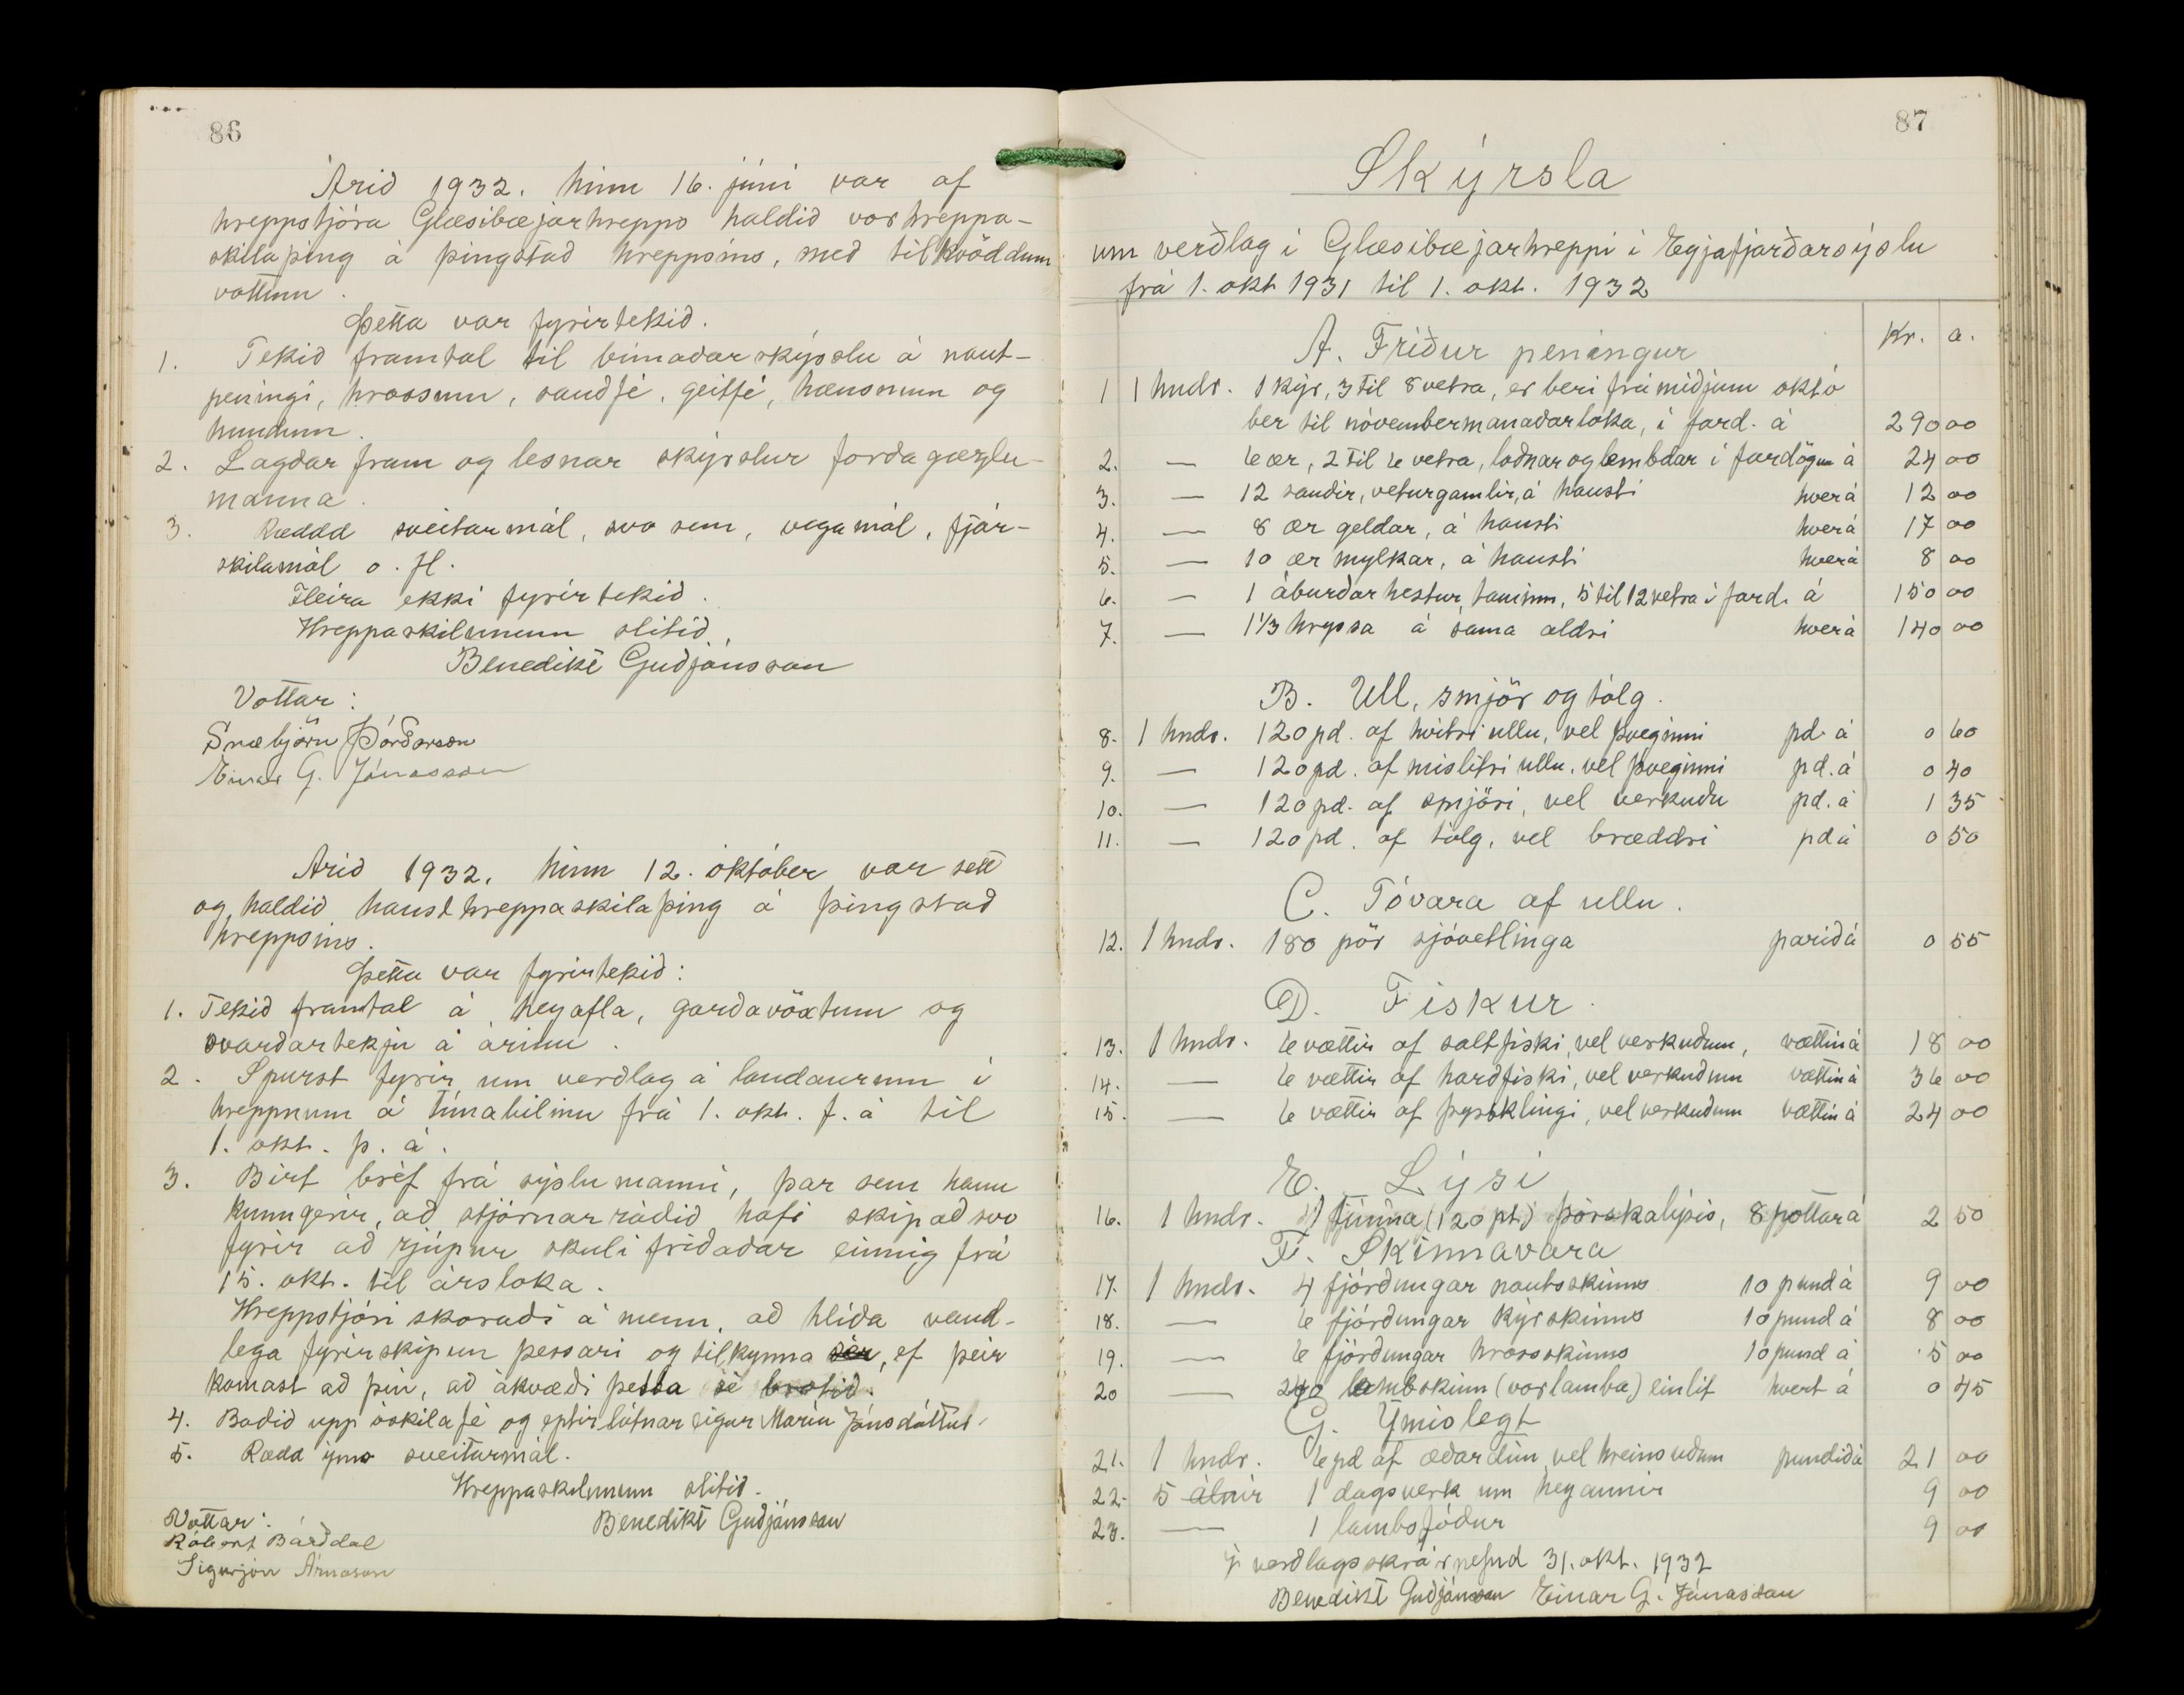 86
Árið 1932. hinn 16. júní var af
hreppstjóra Glæsibæjarhrepps haldið vorhreppa-
skilaþing á þingstað hreppsins, með tilkvöddum
vottum.
Þetta var fyrirtekið.
1. Tekið framtal til búnaðarskýrslu á naut-
peningi, hrossum, sauðfé, geitfé, hænsnum og
hundum.
2. Lagðar fram og lesnar skýrslur forðagæzlu-
manna.
3. Rædd sveitarmál, svo sem, vegamál, fjár-
skilamál o. fl.
Fleira ekki fyrirtekið.
Hreppaskilunum slitið.
Benedikt Guðjónsson
Vottar:
Snæbjörn Þórðarson
Einar G. Jónasson
Árið 1932. hinn 12. október var sett
og haldið hausthreppaskilaþing á þingstað
hreppsins.
Þetta var fyrirtekið:
1. Tekið framtal á heyafla, garðavöxtum og
svarðartekju á árinu.
2. Spurst fyrir um verðlag á landaurum í
hreppnum á tímabilinu frá 1. okt. f. á til
1. okt. þ. á.
3. Birt bréf frá sýslumanni, þar sem hann
kunngerir, að stjórnarráðið hafi skipað svo
fyrir að rjúpur skuli friðaðar einnig frá
15. okt. til ársloka.
Hreppstjóri skoraði á menn, að hlíða vand-
lega fyrirskipun þessari og tilkynna sér, ef þeir
komast að því, að ákvæði þetta sé brotið.
4. Boðið upp óskilafé og eptirlátnar eigur Maríu Jónsdóttur.
5. Rædd ýms sveitarmál.
Hreppaskilunum slitið.
Benedikt Guðjónsson
Vottar:
Róbert Bárðdal
Sigurjón Árnason
87
Skýrsla
um verðlag í Glæsibæjarhreppi í Eyjafjarðarsýslu
frá 1. okt 1931 til 1. okt. 1932
Kr. a.
A. Fríður peningur
1 1 hndr. 1 kýr, 3 til 8 vetra, er beri frá miðjum októ
ber til nóvembermánaðarloka, í fard. á 290 00
2. — 6 ær, 2 til 6 vetra, loðnar og lembdar í fardögum á 24 00
3. — 12 sauðir, veturgamlir, á hausti hver á 12 00
4. — 8 ær geldar, á hausti hver á 17 00
5. — 10 ær mylkar, á hausti hver á 8 00
6. — 1 áburðarhestur, taminn, 5 til 12 vetra í fard. á 150 00
7. — 1 1/3 hryssa á sama aldri hver á 140 00
B. Ull, smjör og tólg.
8. 1 hndr. 120 pd. af hvítri ullu, vel þveginni pd. á 0 60
9. — 120 pd. af mislitri ullu, vel þveginni pd. á 0 40
10. — 120 pd. af smjöri, vel verkuðu pd. á 1 35
11. — 120 pd. af tólg, vel bræddri pd á 0 50
C. Tóvara af ullu.
12. 1 hndr. 180 pör sjóvetlinga parið á 0 55
D. Fiskur.
13. 1 hndr. 6 vættir af saltfiski, vel verkuðum, vættin á 18 00
14. — 6 vættir af harðfiski, vel verkuðum vættin á 36 00
15. — 6 vættir af þyrsklingi, vel verkuðum vættin á 24 00
E. Lýsi
16. 1 hndr. 1 tunna (120 pt.) þorskalýsis, 8 pottar á 2 50
F. Skinnavara
17. 1 hndr. 4 fjórðungar nautsskinns 10 pund á 9 00
18. — 6 fjórðungar kýrskinns 10 pund á 8 00
19. — 6 fjórðungar hrossskinns 10 pund á 5 00
20 — 240 lambskinn (vorlamba) einlit hvert á 0 45
G. Ýmislegt
21. 1 hndr. 6 pd af æðardún vel hreinsuðum pundið á 21 00
22. 5 álnir 1 dagsverk um heyannir 9 00
23. — 1 lambsfóður 9 00
Í verðlagsskrárnefnd 31. okt. 1932
Benedikt Guðjónsson Einar G. Jónasson